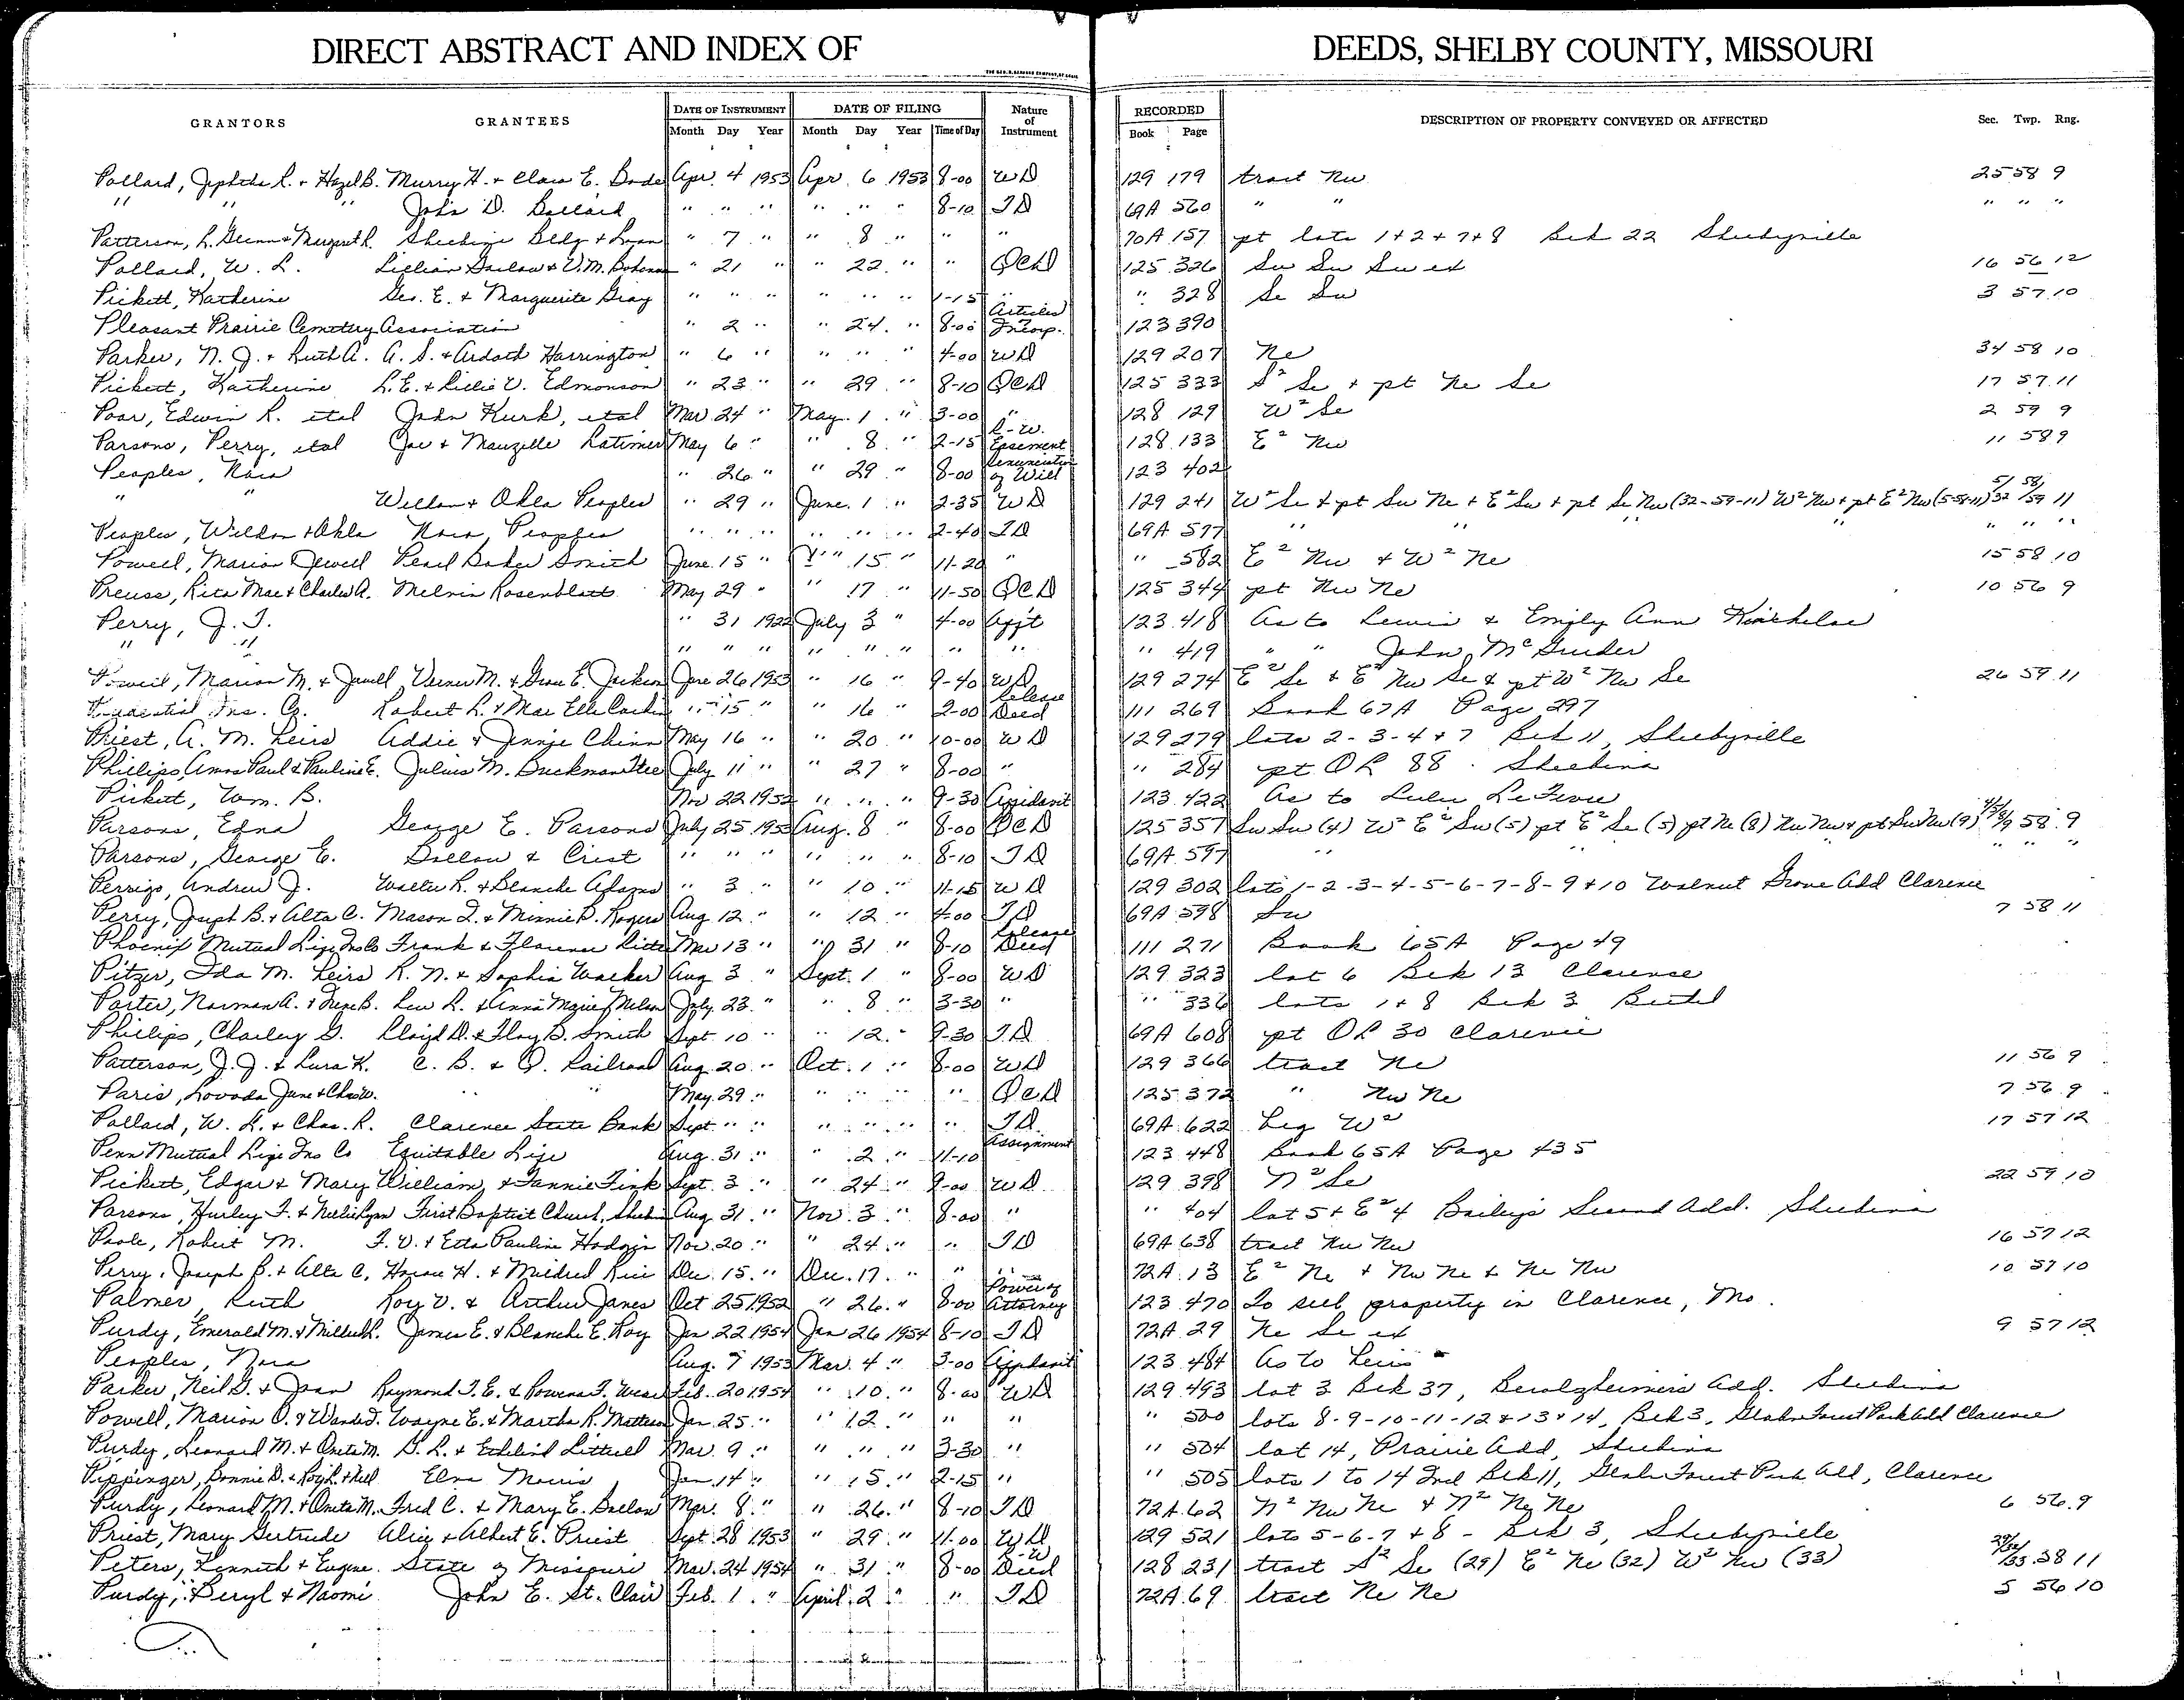 DIRECT ABSTRACT AND INDEX OF DEEDS, SHELBY COUNTY, MISSOURI
GRANTORS GRANTEES DATE OF INSTRUMENT Month Day Year DATE OF FILING Month Day Year Time of Day Nature of Instrument RECORDED Book Page DESCRIPTION OF PROPERTY CONVEYED OR AFFECTED Sec. Twp. Rng.
Pollard, Jephtha R. + Hazel B. Murry H. + Clara E. Dode Apr. 4 1953 Apr. 6 1953 8-00 WD 129 179 tract Nw 25 58 9
" " John D. Ballard " " " " " " 8-10 TD 69A 560 " " " " "
Patterson, L. Glenn + Margaret R. Shelbina Bldg + Loan " 7 " " 8 " " " 70A 157 pt lots 1+2+7+8 Blk 22 Shelbyville
Pollard, W. L. Lillian + V.M. " 21 " " 22 " " QCD 125 326 Sw Sw Sw ex 16 56 12
Pickett, Katherine Geo. E. + Marguerite Gray " " " " " " 1-15 " " 328 Se Sw 3 57 10
Pleasant Prairie Cemetery Association " 2 " " 24 " 8-00 Articles Incorp. 123 390
Parker, N. J. + Ruth A. A. S. + Ardath Harrington " 6 " " " " 4-00 WD 129 207 Ne 34 58 10
Pickett, Katherine L. E. + Lillie V. Edmonson " 23 " " 29 " 8-10 QCD 125 333 S² Se + pt Ne Se 17 57 11
Poor, Edwin R. etal John Kurk, etal Mar 24 " May 1 " 3-00 " 128 129 W² Se 2 59 9
Parsons, Perry, etal Joe + Manzille Latimer May 6 " " 8 " 2-15 R-W. Easement 128 133 E² Nw 11 58 9
Peoples, Nora " 26 " " 29 " 8-00 Renunciation of Will 123 402
" " Weldon + Okla Peoples " 29 " June 1 " 2-35 WD 129 241 W² Se + pt Sw Ne + E² Sw + pt Se Nw (32-59-11) W² Nw + pt E² Nw (5-58-11) 5/32 58/59 11
Peoples, Weldon + Okla Nora Peoples " " " " " " 2-40 TD 69A 577 " " " " "
Powell, Marion Jewell Pearl Baker Smith June 15 " " 15 " 11-20 " " 582 E² Nw + W² Ne 15 58 10
Preuss, Rita Mae + Charles A. Melvin Rosenblatt May 29 " " 17 " 11-50 QCD 125 344 pt Nw Ne 10 56 9
Perry, J. T. " 31 1922 July 3 " 4-00 Afft 123 418 As to Lewis + Emily Ann
" " " " " " " " " " " 419 " " John McGruder
Powell, Marion M. + Jewell Verner M. + Grace E. Jackson June 26 1953 " 16 " 9-40 WD 129 274 E² Se + E² Nw Se + pt W² Nw Se 26 59 11
Prudential Ins. Co. Robert L. + Mae Elle " 15 " " 16 " 2-00 Release Deed 111 269 Book 67A Page 297
Priest, A. M. heirs Addie + Jennie Chinn May 16 " " 20 " 10-00 WD 129 279 lots 2-3-4+7 Blk 11, Shelbyville
Phillips, Amos Paul + Pauline E. Julius M. Buckman Trtee July 11 " " 27 " 8-00 " " 284 pt OL 88 Shelbina
Pickett, Wm. B. Nov 22 1952 " " " 9-30 Affidavit 123 422 As to Lulu
Parsons, Edna George E. Parsons July 25 1953 Aug. 8 " 8-00 QCD 125 357 Sw Sw (4) W² E² Sw (5) pt E² Se (5) pt Ne (8) Nw Nw + pt Sw Nw (9) 4/5/8/9 58 9
Parsons, George E. Dollow + Crist " " " " " " 8-10 TD 69A 597 " " " "
Perrigo, Andrew J. Walter R. + Blanche Adams " 3 " " 10 " 11-15 WD 129 302 lots 1-2-3-4-5-6-7-8-9+10 Walnut Grove Add Clarence
Perry, Joseph B. + Alta C. Mason I. + Minnie D. Rogers Aug 12 " " 12 " 4-00 TD 69A 598 Sw 7 58 11
Phoenix Mutual Life Ins Co Frank + Florence Mar 13 " " 31 " 8-10 Release Deed 111 271 Book 65A Page 49
Pitzer, Ida M. heirs R. N. + Sophia Walker Aug 3 " Sept. 1 " 8-00 WD 129 323 lot 6 Blk 13 Clarence
Porter, Norman A. + Irene B. Leu L. + Anna Marie Nelson July 23 " " 8 " 3-30 " " 336 lots 1+8 Blk 3 Bethel
Phillips, Charley G. Lloyd D. + Floy B. Smith Sept. 10 " " 12 " 9-30 TD 69A 608 pt OL 30 Clarence
Patterson, J. J. + Lura K. C. B. + Q. Railroad Aug. 20 " Oct. 1 " 8-00 WD 129 366 tract Ne 11 56 9
Paris, Lovada June + Chas W. " " May 29 " " " " " QCD 125 372 " Nw Ne 7 56 9
Pollard, W. L. + Chas. R. Clarence State Bank Sept " " " " " " TD 69A 622 Beg W² 17 57 12
Penn Mutual Life Ins Co Equitable Life Aug. 31 " " 2 " 11-10 Assignment 123 448 Book 65A Page 435
Pickett, Edgar + Mary William + Fannie Fink Sept. 3 " " 24 " 9-00 WD 129 398 N² Se 22 59 10
Parsons, Hurley F. + Nellie Lynn First Baptist Church, Shelbina Aug 31 " Nov. 3 " 8-00 " " 404 lot 5 + E² 4 Bailey's Second Add. Shelbina
Poole, Robert M. F. V. + Etta Pauline Hodgin Nov. 20 " " 24 " " TD 69A 638 tract Nw Nw 16 57 12
Perry, Joseph B. + Alta C. Horace H. + Mildred Rice Dec. 15 " Dec. 17 " " " 72A 13 E² Ne + Nw Ne + Ne Nw 10 57 10
Palmer, Ruth Roy V. + Arthur Janes Oct 25 1952 " 26 " 8-00 Power of Attorney 123 470 To sell property in Clarence, Mo.
Purdy, Emerald M. + Mildred L. James E. + Blanche E. Roy Jan 22 1954 Jan 26 1954 8-10 TD 72A 29 Ne Se ex 9 57 12
Peoples, Nora Aug. 7 1953 Mar. 4 " 3-00 Affidavit 123 484 As to heirs
Parker, Neil G. + Jean Raymond T. E. + Rowena F. Feb. 20 1954 " 10 " 8-00 WD 129 493 lot 3 Blk 37, Berolzheimer's Add. Shelbina
Powell, Marion O. + Wanda J. Wayne E. + Martha R. Jan. 25 " " 12 " " " " 500 lots 8-9-10-11-12+13+14, Blk 3, Park Add Clarence
Purdy, Leonard M. + Oneta M. G. L. + Littrell Mar. 9 " " " " 3-30 " " 504 lot 14, Prairie Add, Shelbina
Pippinger, Bonnie D. + Elva Morris Jan. 14 " " 15 " 2-15 " " 505 lots 1 to 14 Incl Blk 11, Park Add, Clarence
Purdy, Leonard M. + Oneta M. Fred C. + Mary E. Dollow Mar. 8 " " 26 " 8-10 TD 72A 62 N² Nw Ne + N² Ne Ne 6 56 9
Priest, Mary Gertrude Alice + Albert E. Priest Sept. 28 1953 " 29 " 11-00 WD 129 521 lots 5-6-7+8 - Blk 3, Shelbyville
Peters, Kenneth + Eugene State of Missouri Mar. 24 1954 " 31 " 8-00 R-W Deed 128 231 tract S² Se (29) E² Ne (32) W² Nw (33) 29/32/33 58 11
Purdy, Beryl + Naomi John E. St. Clair Feb. 1 " April 2 " " TD 72A 69 tract Ne Ne 5 56 10